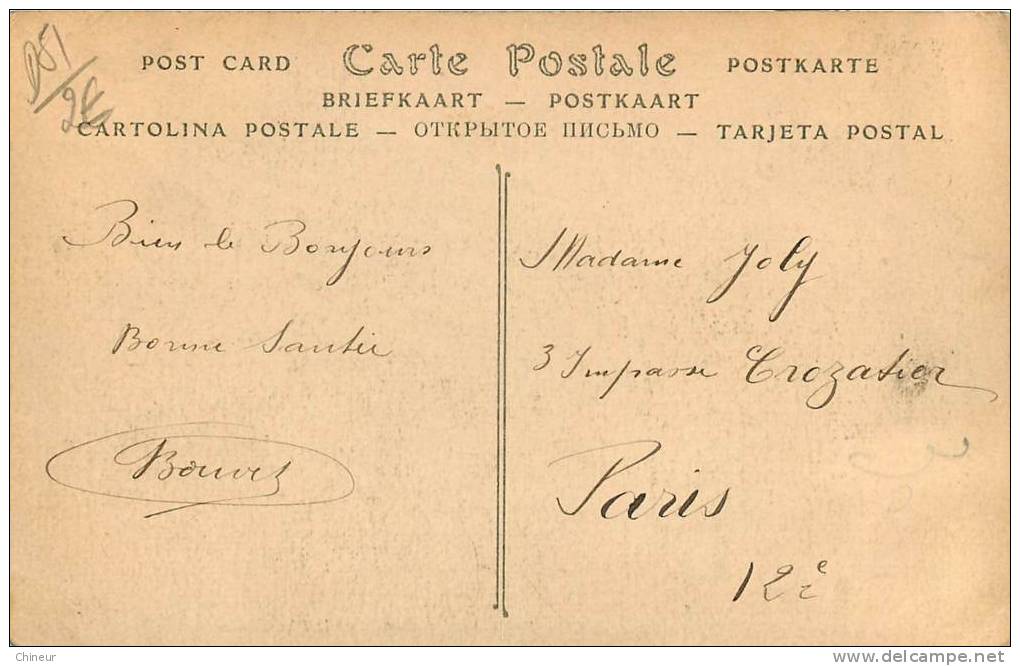 POST CARD Carte Postale POSTKARTE
BRIEFKAART — POSTKAART
CARTOLINA POSTALE — ОТКРЫТОЕ ПИСЬМО — TARJETA POSTAL
Bien le Bonjours
Bonne Santée
Madame Joly
3 Impasse Crozatier
Paris
12e
Chineur
www.delcampe.net